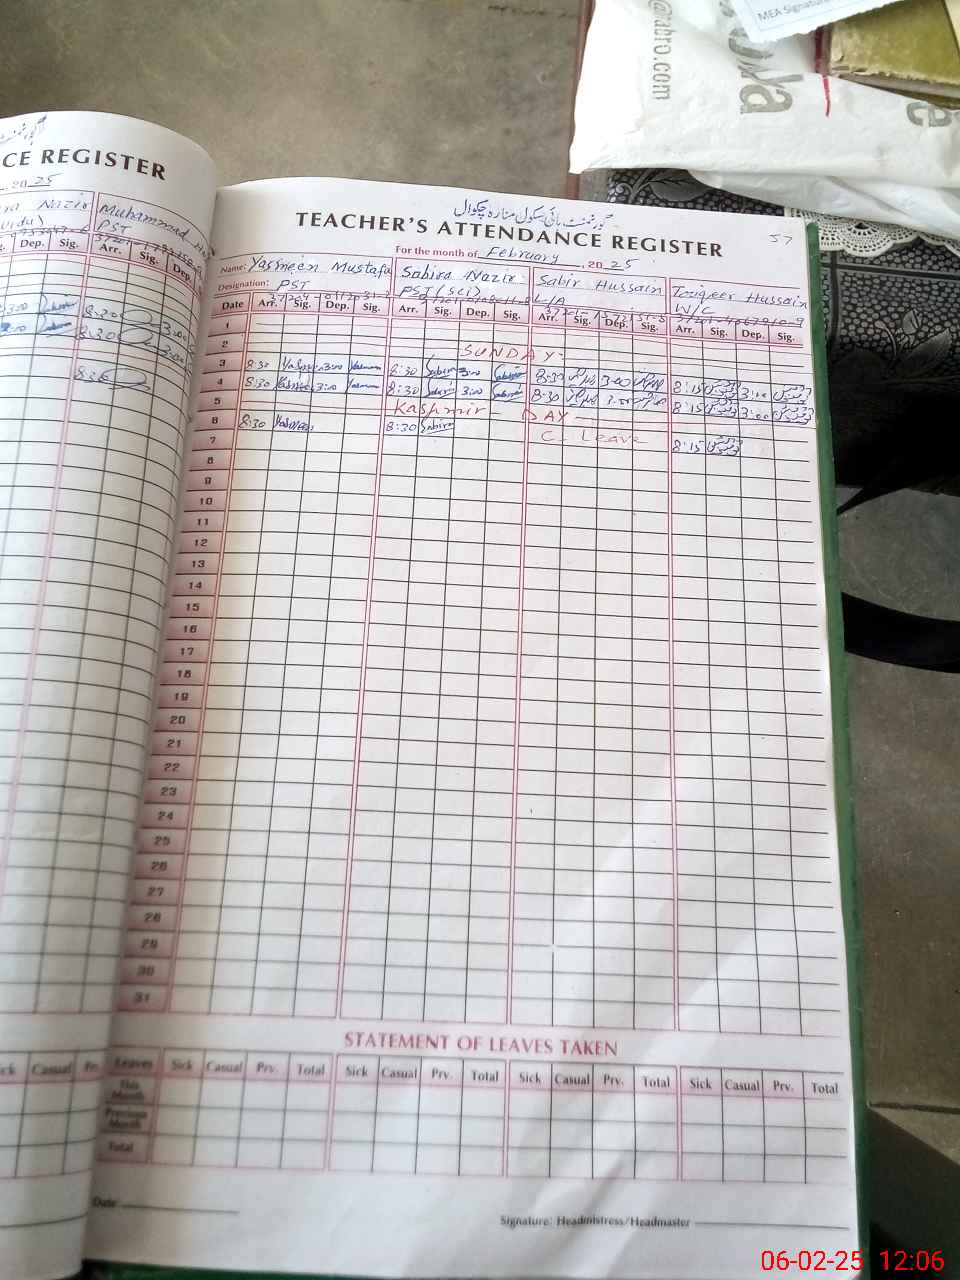 MEA Signature
@tabro.com
CE REGISTER
, 20 25
Nazir
Muhammad
PST
Dep. Sig. Arr. Sig. Dep.
گورنمنٹ ہائی سکول منارہ چکوال
TEACHER'S ATTENDANCE REGISTER
57
For the month of February, 20 25
Name: Yasmeen Mustafa Sabira Nazir Sabir Hussain Touqeer Hussain
Designation: PST PST (Sci) L/A W/C
Date Arr. Sig. Dep. Sig. Arr. Sig. Dep. Sig. Arr. Sig. Dep. Sig. Arr. Sig. Dep. Sig.
1
2 SUNDAY
3 8:30 3:00 8:30 Sabira 3:00 Sabira 8:30 3:00 8:15 3:00
4 8:30 3:00 8:30 Sabira 3:00 Sabira 8:30 3:00 8:15 3:00
5 Kashmir - DAY
6 8:30 8:30 Sabira C. Leave 8:15
7
8
9
10
11
12
13
14
15
16
17
18
19
20
21
22
23
24
25
26
27
28
29
30
31
STATEMENT OF LEAVES TAKEN
Casual
Leaves Sick Casual Prv. Total Sick Casual Prv. Total Sick Casual Prv. Total Sick Casual Prv. Total
This Month
Previous Month
Total
Date:
Signature: Headmistress/Headmaster
06-02-25 12:06